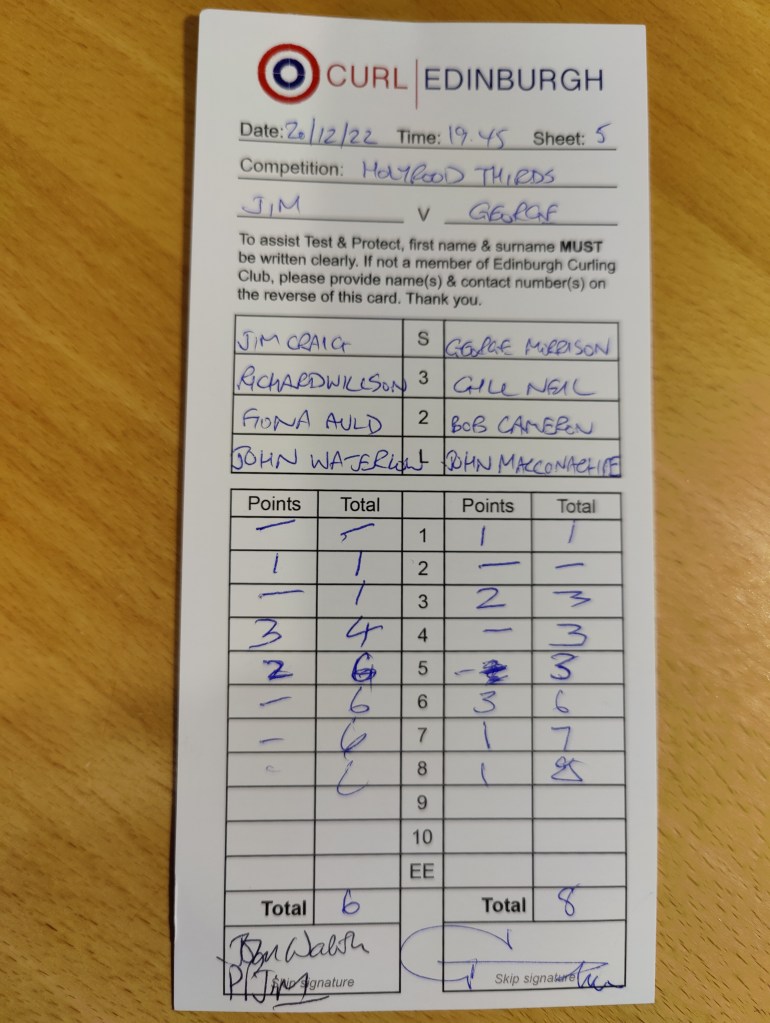 CURL | EDINBURGH
Date: 20/12/22 Time: 19.45 Sheet: 5
Competition: HOLYROOD THIRDS
JIM V GEORGE
To assist Test & Protect, first name & surname MUST
be written clearly. If not a member of Edinburgh Curling
Club, please provide name(s) & contact number(s) on
the reverse of this card. Thank you.
JIM CRAIG S GEORGE MORRISON
RICHARD WILLSON 3 GILL NEIL
FIONA AULD 2 BOB CAMERON
JOHN WATERLOW 1 JOHN MACCONACHIE
Points Total Points Total
– – 1 1 1
1 1 2 – –
– 1 3 2 3
3 4 4 – 3
2 6 5 – 3
– 6 6 3 6
– 6 7 1 7
- 6 8 1 8
9
10
EE
Total 6 Total 8
Walsh
P/ JIM Skip signature Skip signature